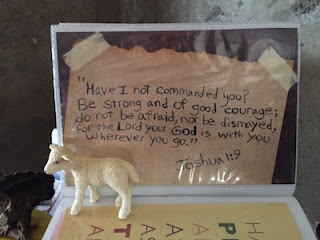 "Have I not commanded you?
Be strong and of good courage;
do not be afraid, nor be dismayed,
for the Lord your God is with you
wherever you go."
Joshua 1:9